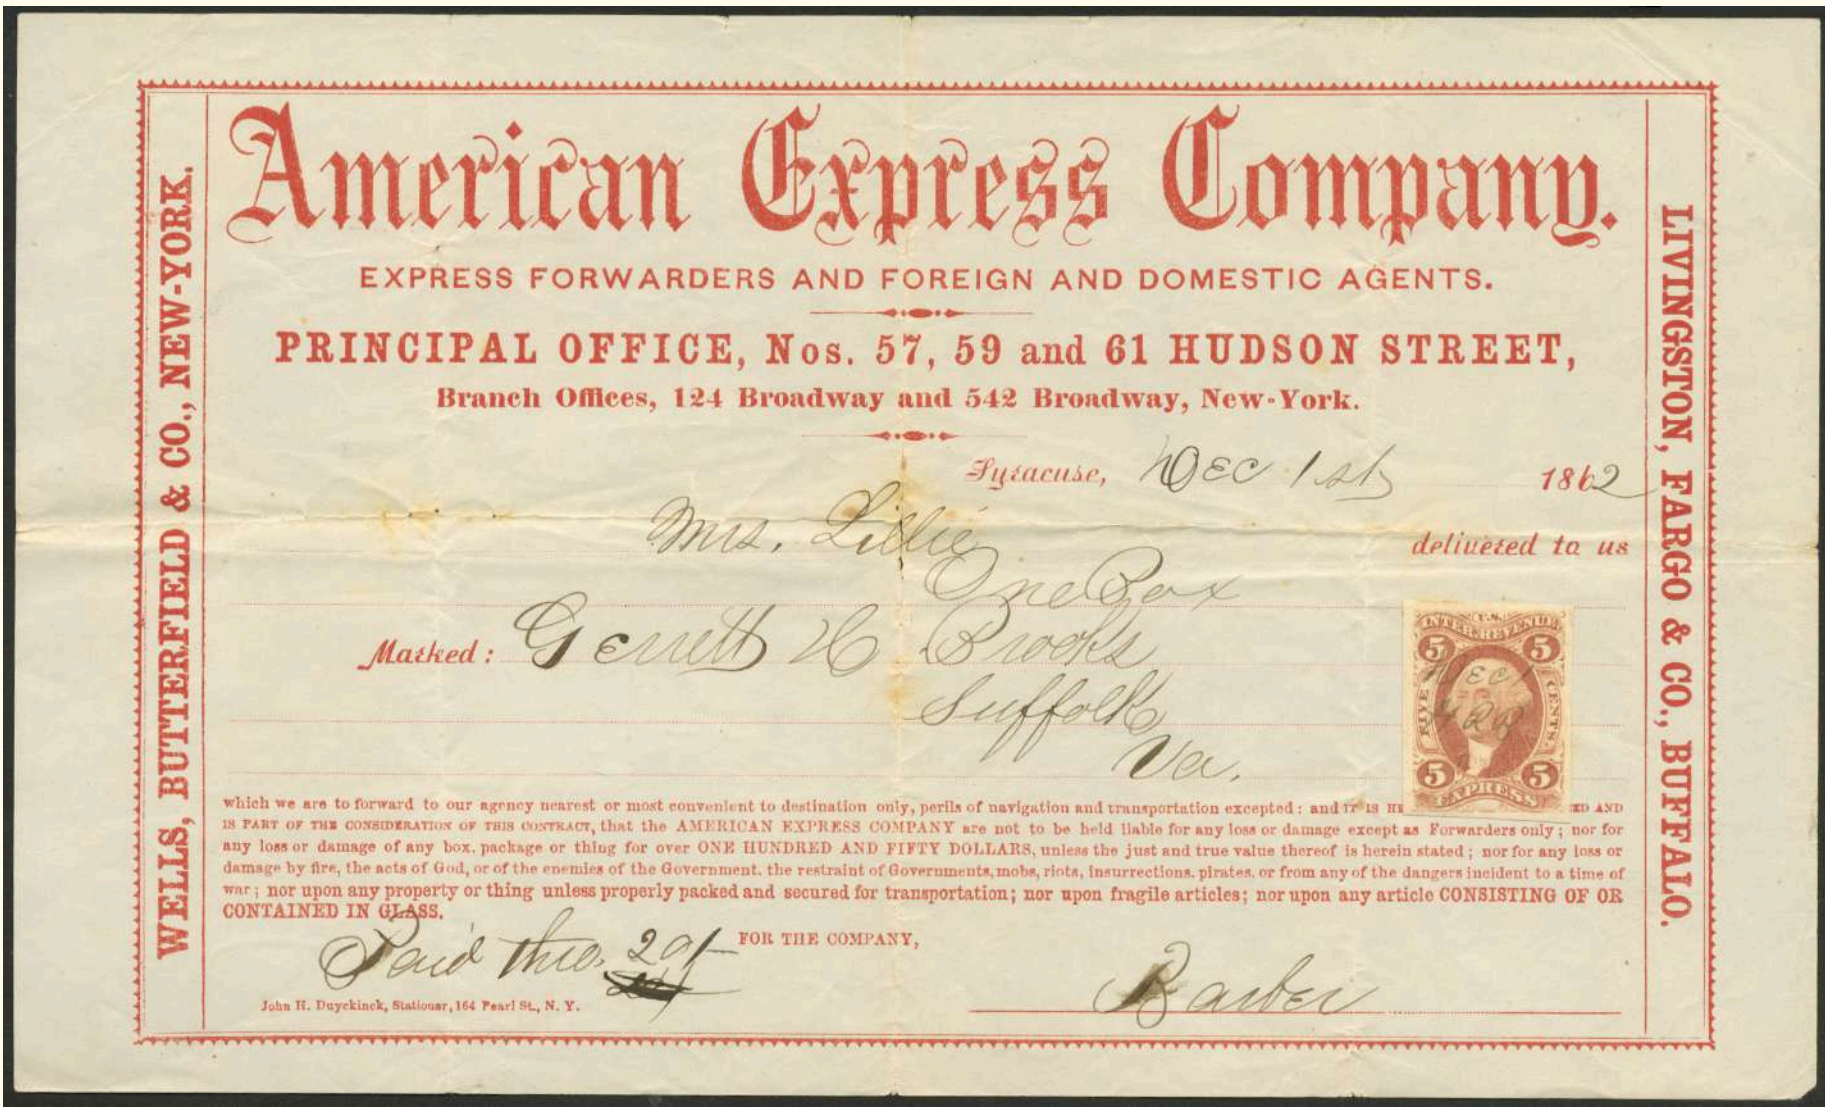 American Express Company.
EXPRESS FORWARDERS AND FOREIGN AND DOMESTIC AGENTS.
PRINCIPAL OFFICE, Nos. 57, 59 and 61 HUDSON STREET,
Branch Offices, 124 Broadway and 542 Broadway, New-York.
WELLS, BUTTERFIELD & CO., NEW-YORK.
LIVINGSTON, FARGO & CO., BUFFALO.
Syracuse, Dec 1st 1862
Mrs. Lillie delivered to us
One Box
Marked: Gerrett H Brooks
Suffolk
Va.
U.S.
INTER. REVENUE
5 5
Dec 1
FIVE CENTS
5 5
EXPRESS
which we are to forward to our agency nearest or most convenient to destination only, perils of navigation and transportation excepted: and IT IS HE ED AND
IS PART OF THE CONSIDERATION OF THIS CONTRACT, that the AMERICAN EXPRESS COMPANY are not to be held liable for any loss or damage except as Forwarders only; nor for
any loss or damage of any box, package or thing for over ONE HUNDRED AND FIFTY DOLLARS, unless the just and true value thereof is herein stated; nor for any loss or
damage by fire, the acts of God, or of the enemies of the Government, the restraint of Governments, mobs, riots, insurrections, pirates, or from any of the dangers incident to a time of
war; nor upon any property or thing unless properly packed and secured for transportation; nor upon fragile articles; nor upon any article CONSISTING OF OR
CONTAINED IN GLASS.
Paid thro. 20/- FOR THE COMPANY,
Barber
John H. Duyckinck, Stationer, 164 Pearl St., N. Y.